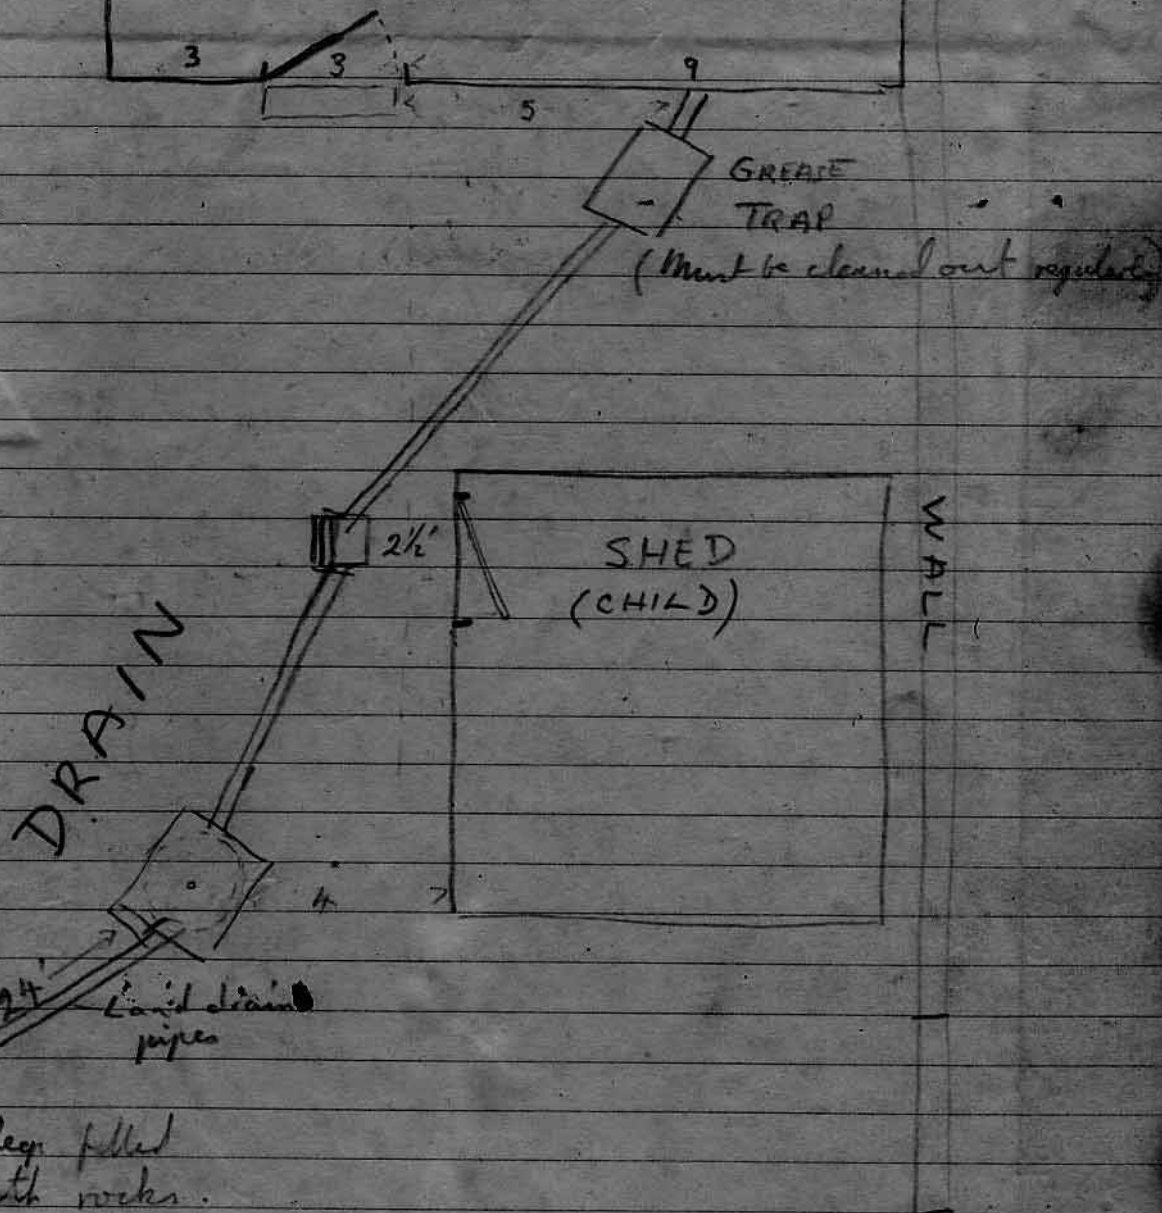 3
3
9
5
GREASE
TRAP
(Must be cleaned out regularly)
2½'
SHED
(CHILD)
WALL
DRAIN
4
24'
Land drain
pipes
filled
rocks.